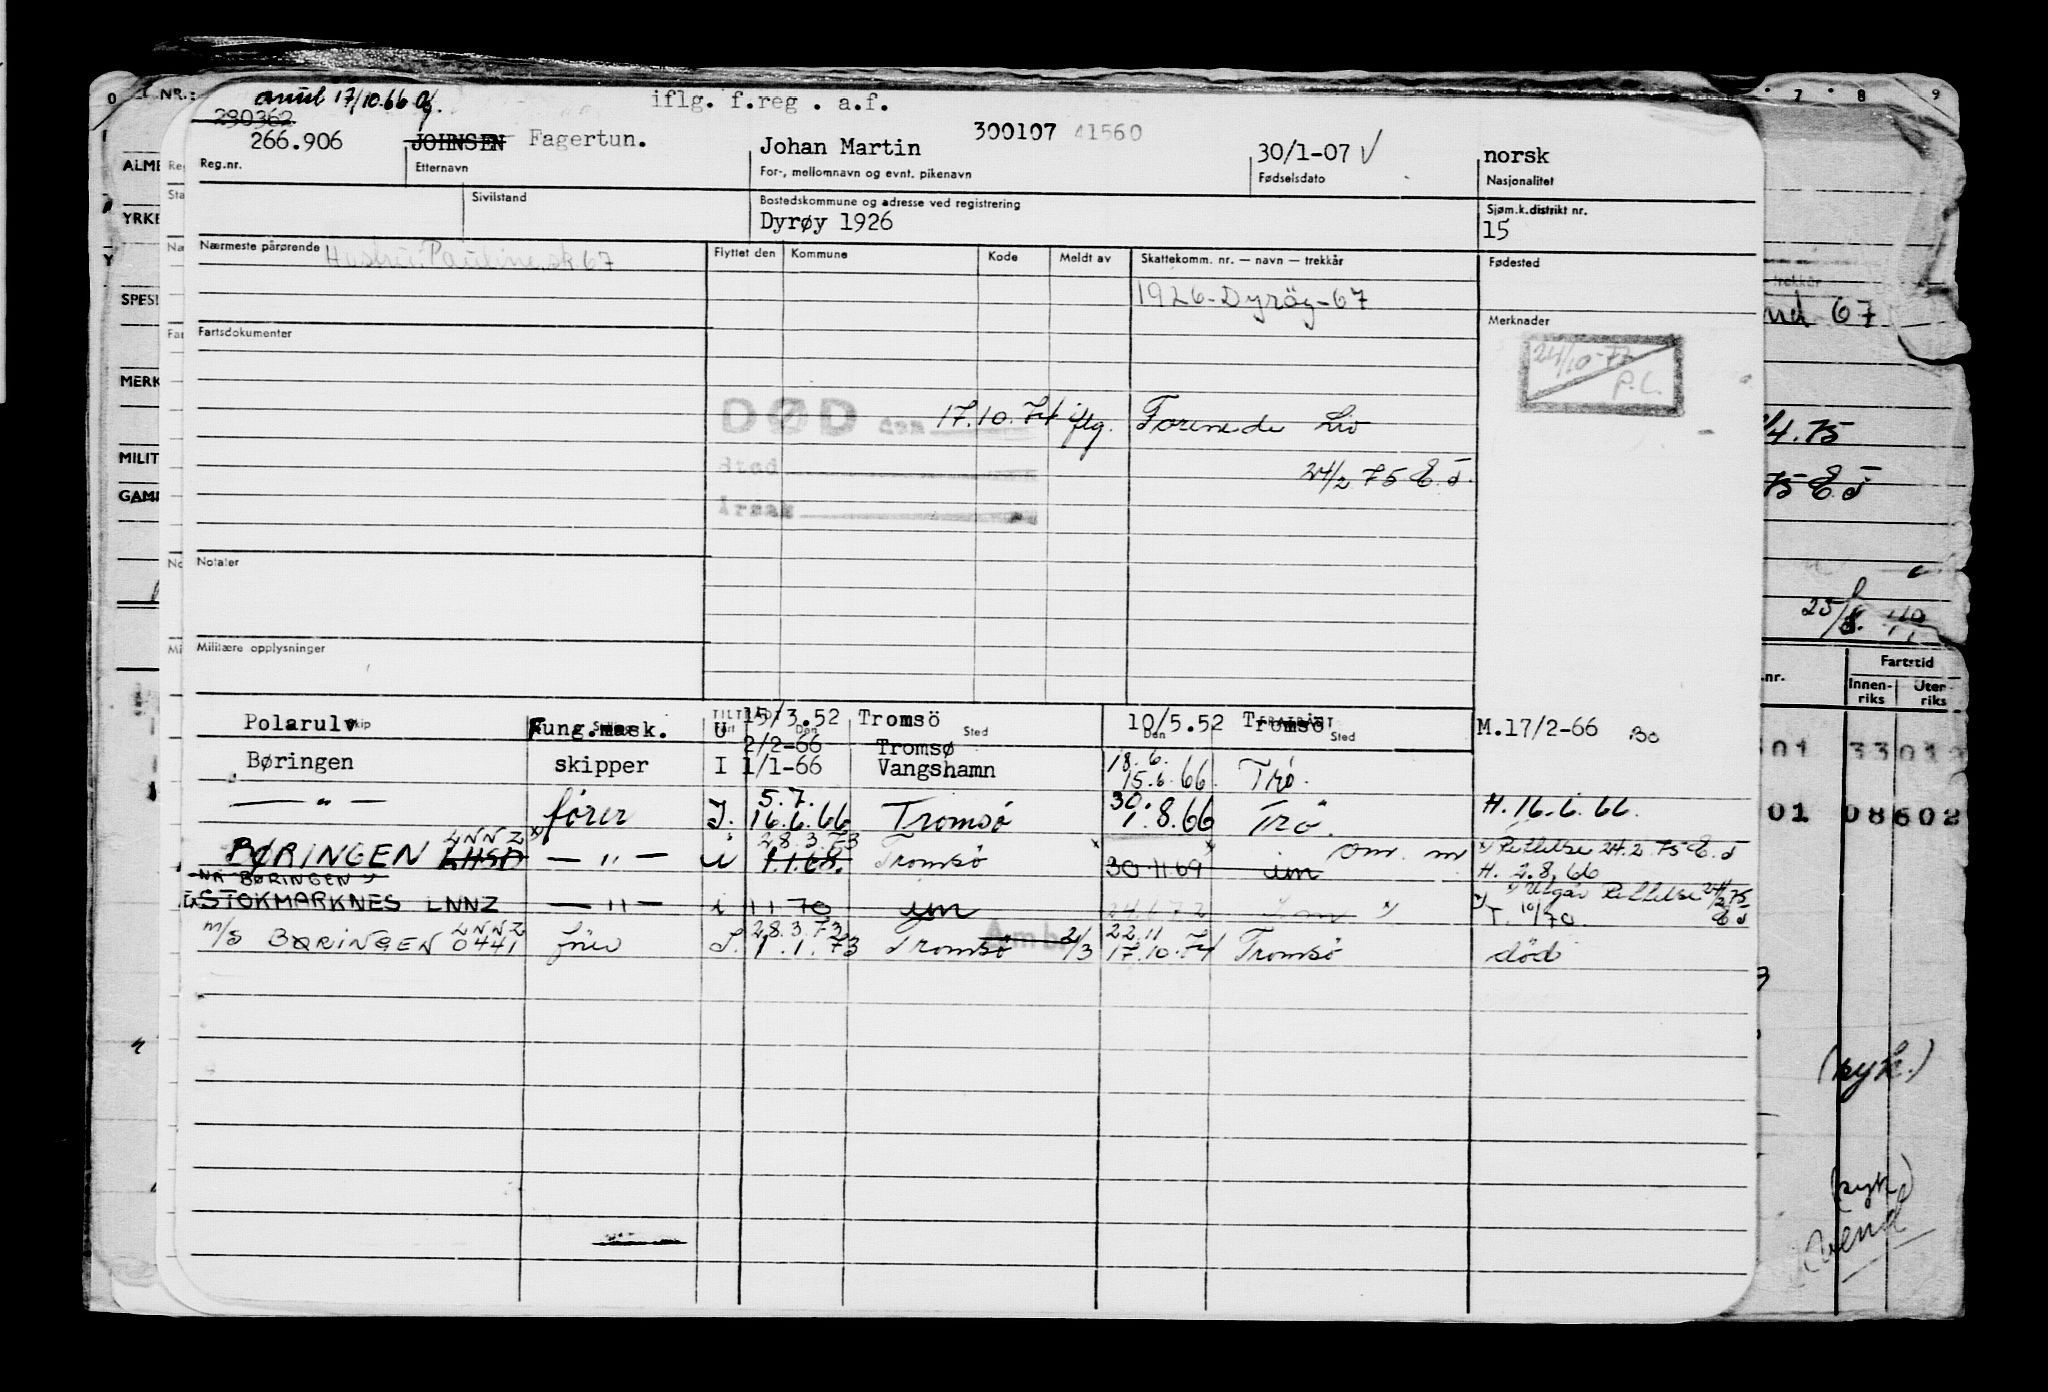 0 L. NR.: annul 17/10.66 iflg. f.reg . a.f. 7 8 9
230362
266.906 JOHNSEN Fagertun. Johan Martin 300107 41560 30/1-07 √ norsk
ALME Reg.nr. Etternavn For-, mellomnavn og evnt. pikenavn Fødselsdato Nasjonalitet
Sivilstand Bostedskommune og adresse ved registrering Sjøm.k.distrikt nr.
YRKE Dyrøy 1926 15
Nærmeste pårørende Hustru: Pauline sk 67 Flyttet den Kommune Kode Meldt av Skattekomm. nr. — navn — trekkår Fødested
SPESI 1926-Dyröy-67 67
Fartsdokumenter Merknader
24/10-77
MERK P.L.
DØD den 17.10.74 iflg. Forenede Liv /4.75
MILIT Sted 24/2 75 E.J. 75 E.J
GAMM Årsak
Notater
25/8.
Militære opplysninger
Fartstid
nr. Innen-riks Uten riks
Skip Stilling TILTRÅDT Fart Den Sted FRATRÅDT Den Sted
Polarulv Fung.mask. U 15/3.52 Tromsö 10/5.52 Tromsö M.17/2-66 Bo
2/2-66 Tromsø 01 33012
Børingen skipper I 1/1-66 Vangshamn 18.6. 15.6.66 Trö.
— " — fører I. 5.7. 16.6.66 Tromsö 30. 1.8.66 Trö. H. 16.6.66. 01 08602
BØRINGEN LHSD LNNZ x) — " — i 28.3.73 1.1.68. Tromsö x 30.11.69 x im Omr. m x) Rettelse 24.2.75 E.J
NÅ BØRINGEN H. 2.8.66
EX STOKMARKNES LNNZ — " — i 1 1 70 im 24.1.72 x) x) Utgår Rettelse 24/2 75 E J
T. 10/70.
m/s BØRINGEN LNNZ 0441 förer I. 28.3.73 1.1.73 Tromsö 2/3 22.11 17.10.74 Tromsö död
(nyk.)
(nyk)
Vend